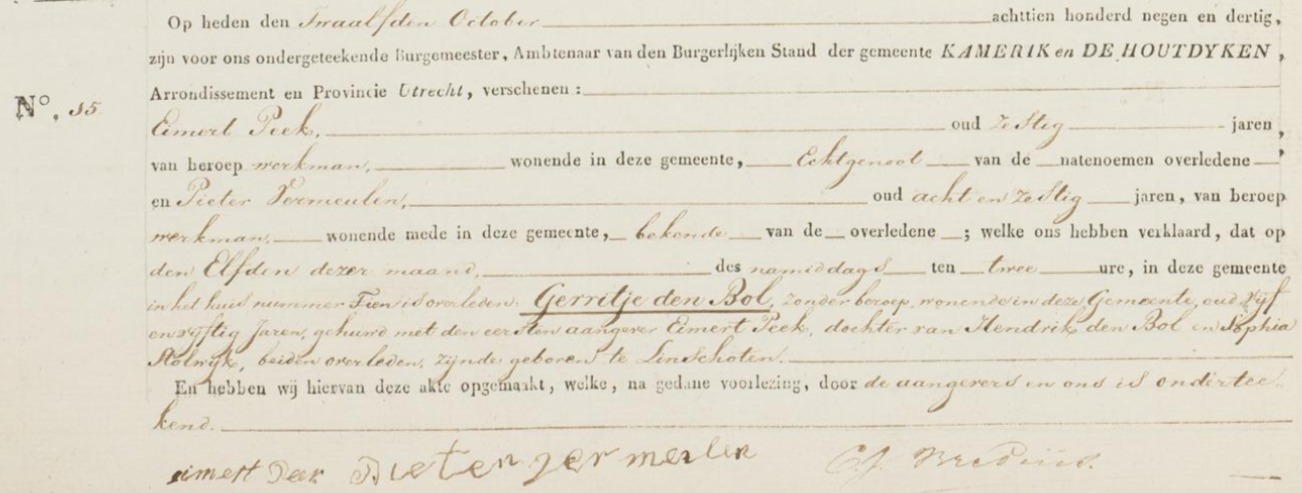 Op heden den Twaalfden October achttien honderd negen en dertig,
zijn voor ons ondergeteekende Burgemeester, Ambtenaar van den Burgerlijken Stand der gemeente KAMERIK en DE HOUTDYKEN,
Arrondissement en Provincie Utrecht, verschenen:
N°. 15.
Eimert Peek, oud Zestig jaren,
van beroep werkman, wonende in deze gemeente, Echtgenoot van de natenoemen overledene,
en Pieter Vermeulen, oud acht en zestig jaren, van beroep
werkman, wonende mede in deze gemeente, bekende van de overledene; welke ons hebben verklaard, dat op
den Elfden dezer maand, des namiddags ten twee ure, in deze gemeente
in het huis nummer Tien is overleden Gerritje den Bol, zonder beroep, wonende in deze Gemeente, oud Vijf
en vijftig Jaren, gehuwd met den eersten aangever Eimert Peek, dochter van Hendrik den Bol en Sophia
Stolwijk, beiden overleden, zijnde geboren te Linschoten.
En hebben wij hiervan deze akte opgemaakt, welke, na gedane voorlezing, door de aangevers en ons is ondertee-
kend.
eimert Peek Pieter vermeulen CJ Bredius.